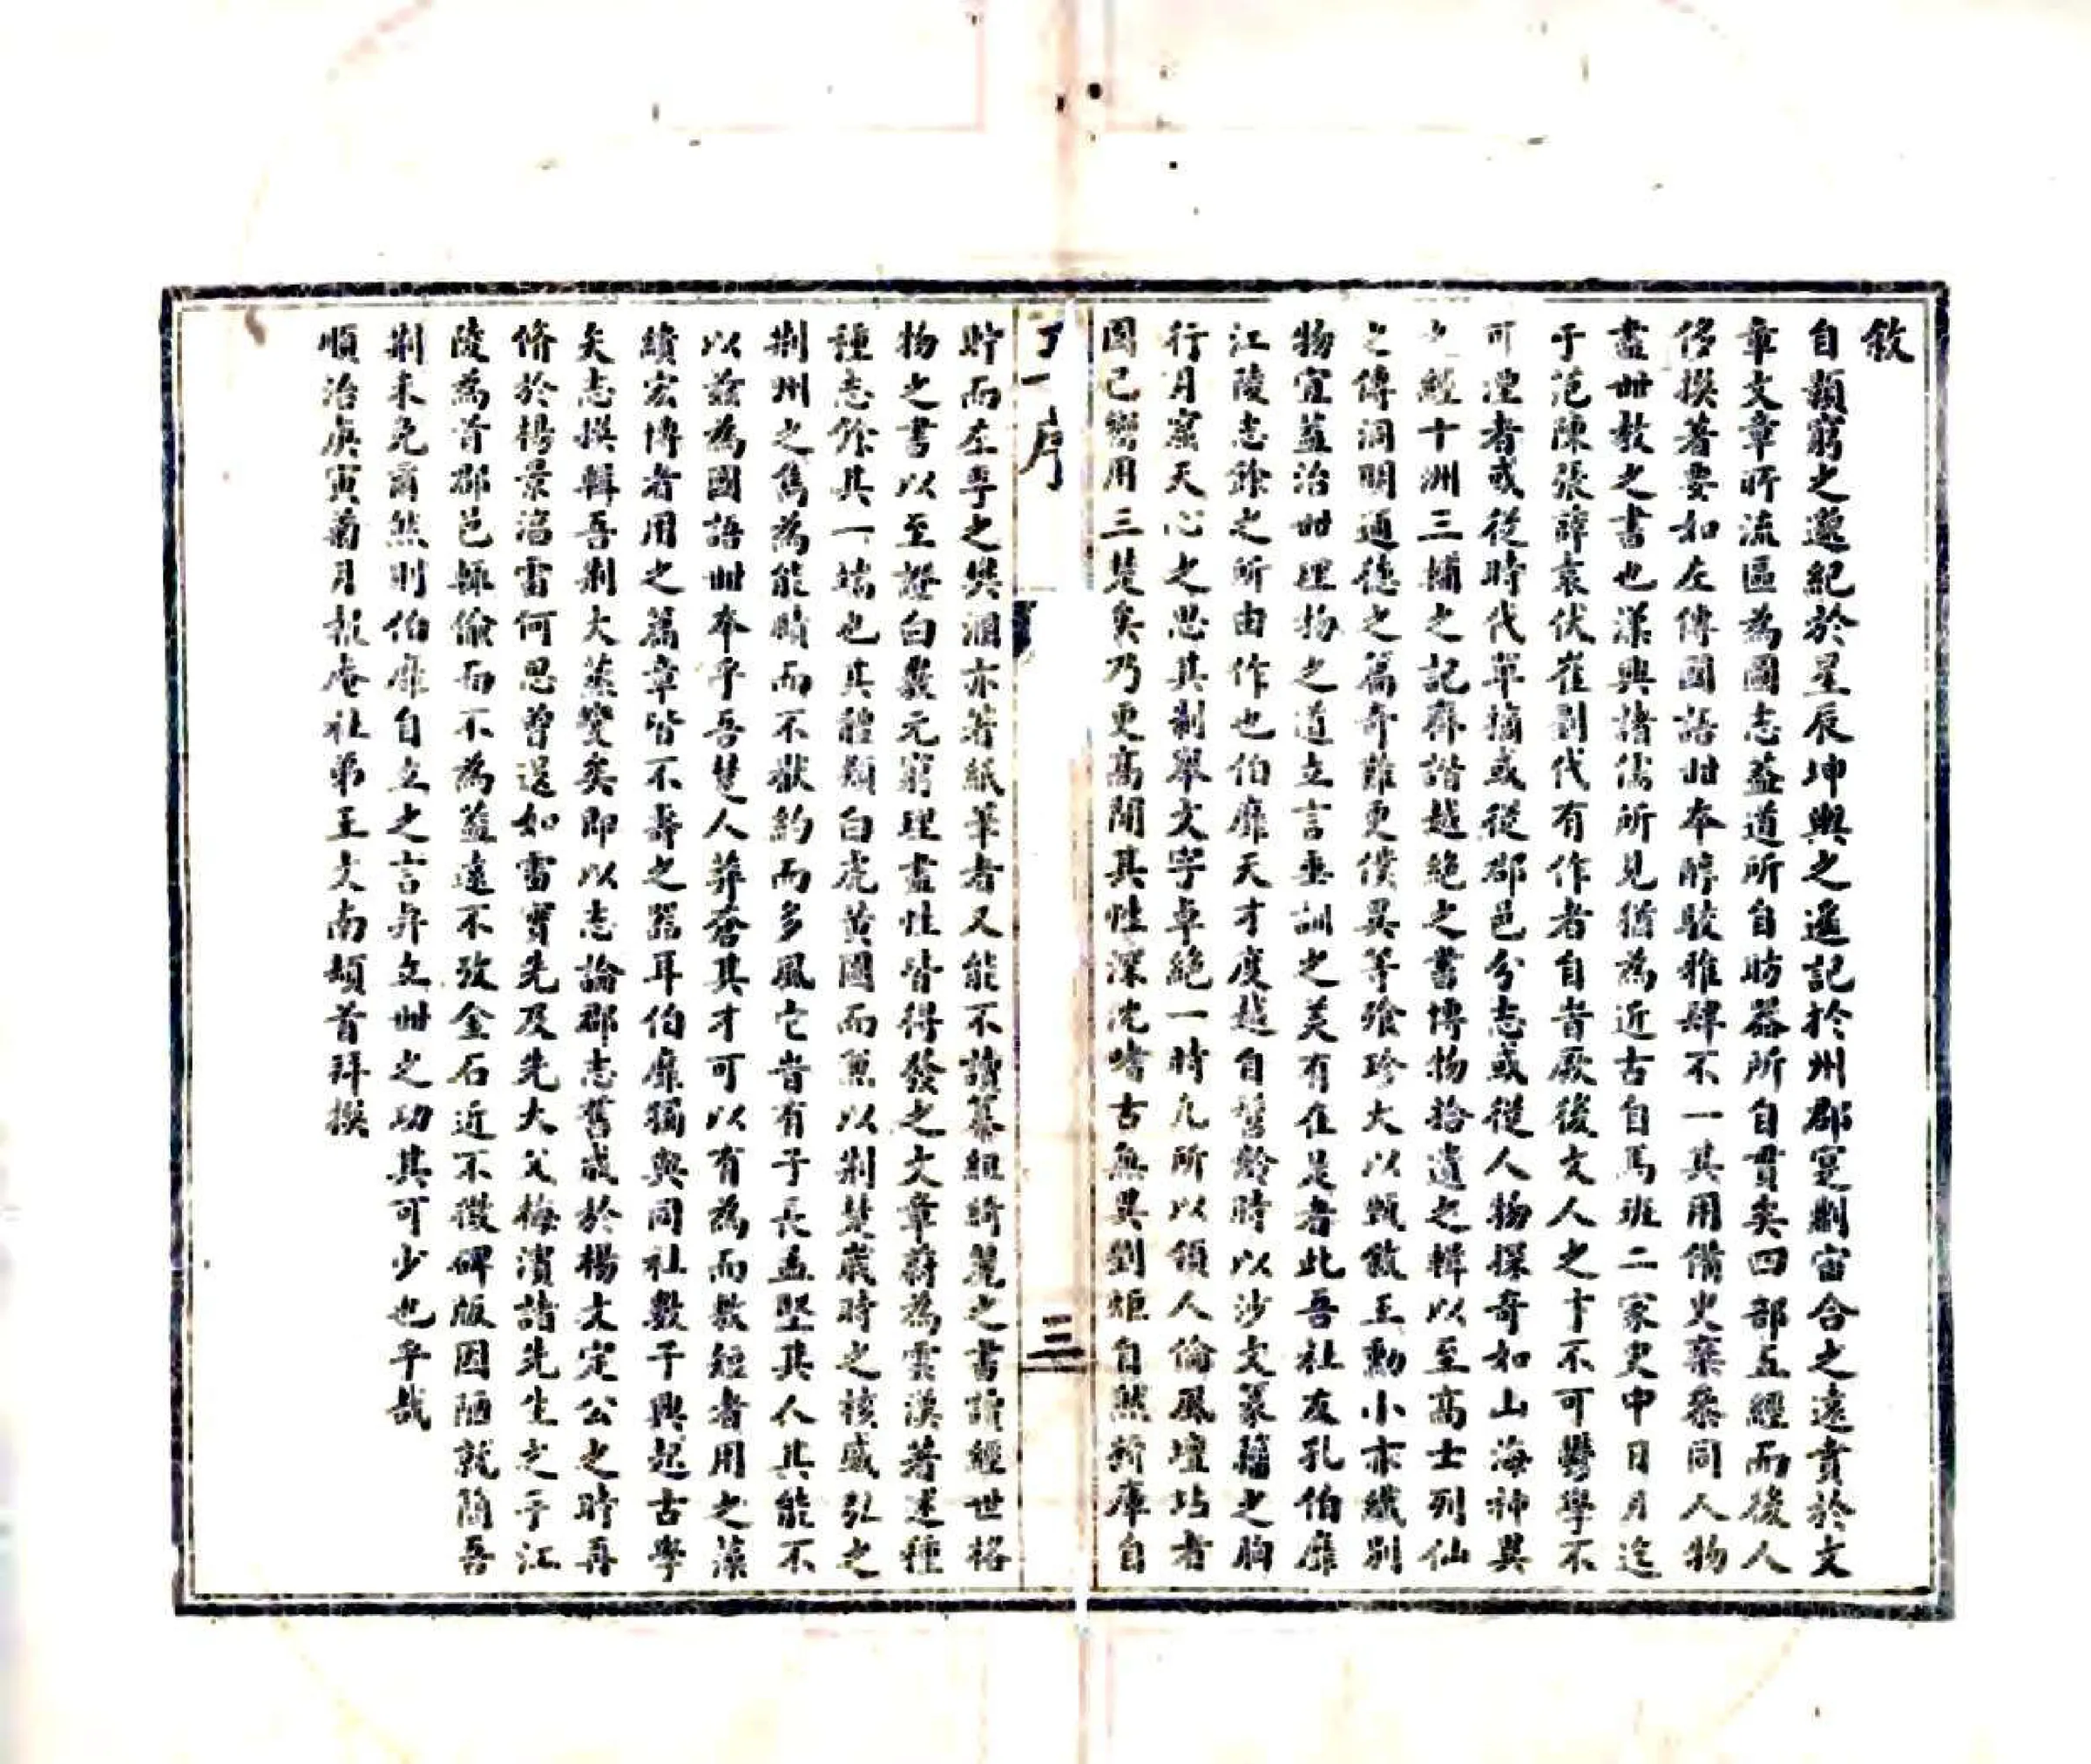 敘
自顥窮之邈紀於星辰坤輿之遥記於州郡寔劃宙合之遠責於文
章文章所流區為國志葢道所自昉器所自貫矣四部五經而後人
侈撰著要如左傳國語丗本醇駁雅肆不一其用備史棄桼同人物
盡丗教之書也漢興諸儒所見猶為近古自馬班二家史申日月迄
于范陳張薛袁伏崔劉代有作者自昔厥後文人之才不可鬱學不
可湮者或從時代單摛或從郡邑分志或從人物探奇如山海神異
之經十洲三輔之記齊諧越絶之書博物拾遺之輯以至高士列仙
之傳洞明通德之篇奇雖更僕異等飱珍大以甄敘王勳小亦纖別
物宜葢治丗理物之道立言垂訓之美有在是者此吾社友孔伯靡
江陵志餘之所由作也伯靡天才度越自髫齡時以沙文篆籀之胸
行月窟天心之思其制舉文字卓絶一時凡所以領人倫風壇坫者
固已嚮用三楚矣乃更高閒其性深沈嗜古無異劉炬自然折庫自
貯而左專之樊涸亦著紙筆者又能不讀纂組綺麗之書讀經世格
物之書以至證白叢元窮理盡性皆得發之文章蔚為雲漢著述種
種志餘其一端也其體類白虎黄圖而兼以荆楚嵗時之核盛弘之
荆州之雋為能賾而不猒約而多風它昔有子長孟堅其人其能不
以兹為國語丗本乎吾楚人莽蒼其才可以有為而教短者用之藻
繢宏博者用之篇章皆不壽之器耳伯靡獨與同社數子興起古學
矣志撰輯吾荆大蒸變矣即以志論郡志舊成於楊文定公之時再
脩於楊景淊雷何思曾退如雷實先及先大父梅濱諸先生之手江
陵為首郡邑輒儉而不為葢遠不攷金石近不徴碑版因陋就簡吾
荆未免爾然則伯靡自立之言弁立丗之功其可少也乎哉
順治庚寅菊月報庵社弟王文南頓首拜撰
序
三